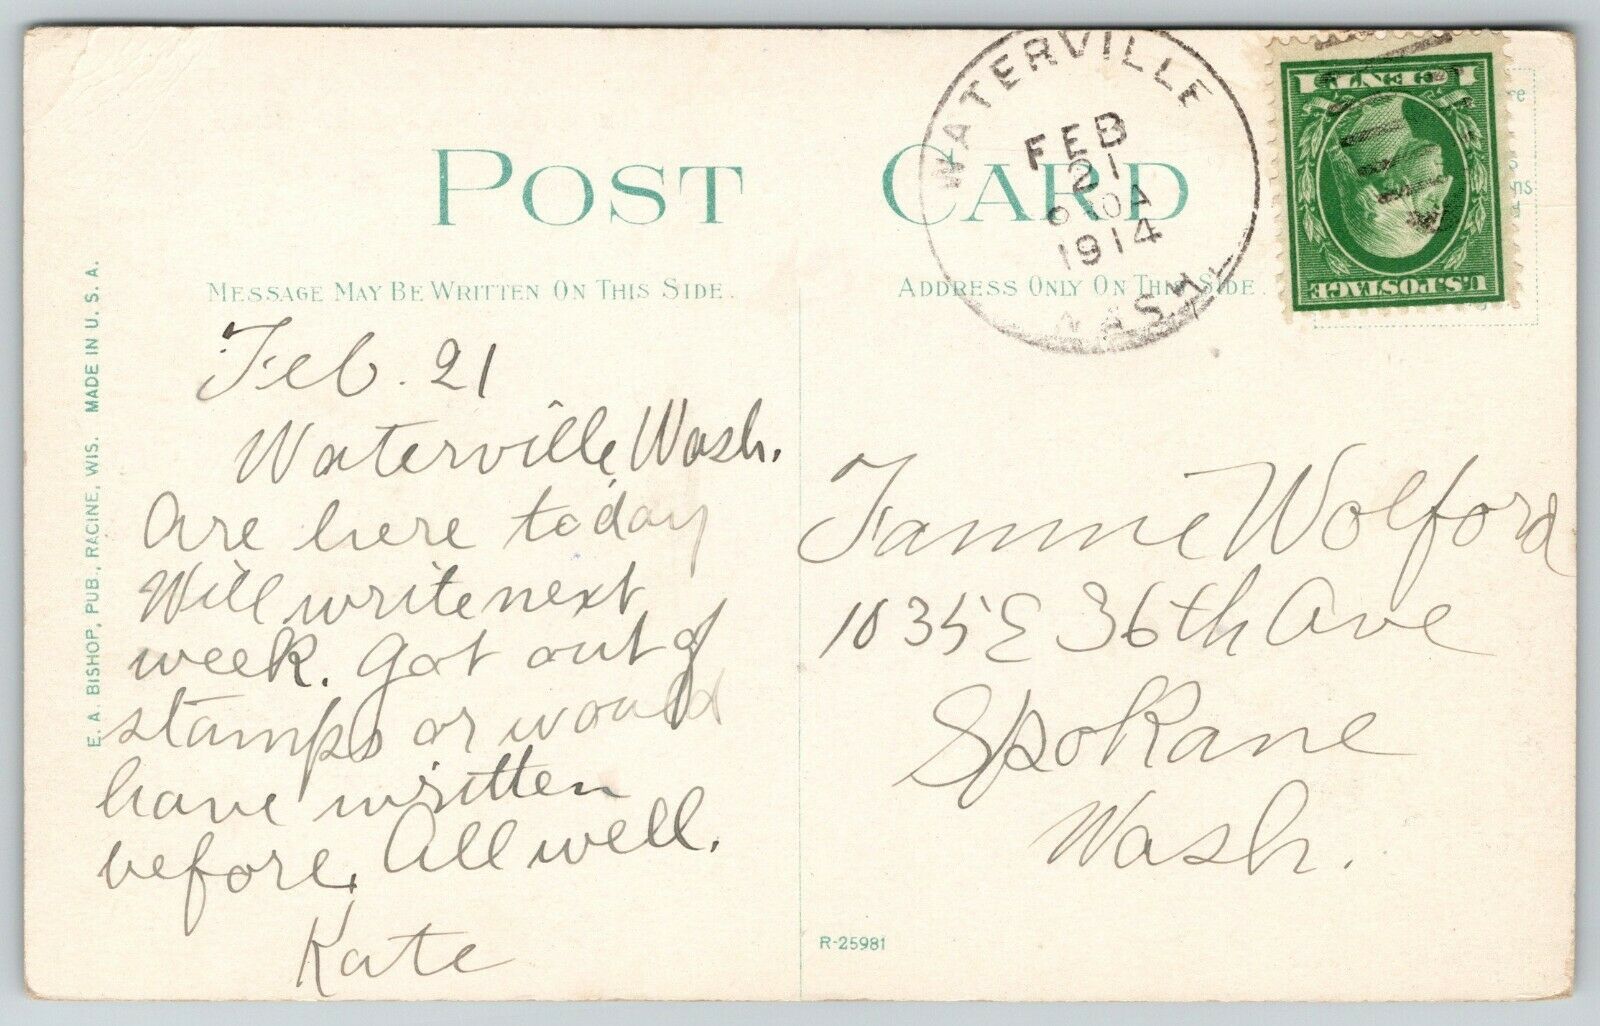 POST CARD
MESSAGE MAY BE WRITTEN ON THIS SIDE.
ADDRESS ONLY ON THIS SIDE.
WATERVILLE
FEB
21
1914
WASH.
1 CENT 1
U.S. POSTAGE
E. A. BISHOP, PUB., RACINE, WIS. MADE IN U. S. A.
Feb. 21
Waterville, Wash.
Are here today
Will write next
week. Got out of
stamps or would
have written
before. All well.
Kate
Fannie Wolford
1035 E 36th Ave
Spokane
Wash.
R-25981